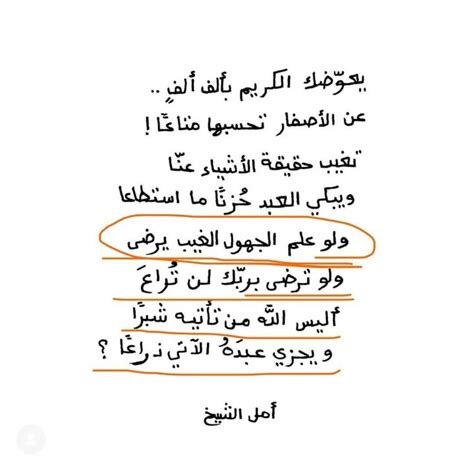 يعوّضك الكريم بألف ألفٍ ..
عن الأصفار تحسبها متاعًا !
تغيب حقيقة الأشياء عنّا
ويبكي العبد حُزنًا ما استطاعا
ولو علم الجهول الغيب يرضى
ولو ترضى بربّك لن تُراعَ
أليس اللّه من تأتيه شبرًا
ويجزي عبدَهُ الآتي ذراعًا ؟
أمل الشيخ